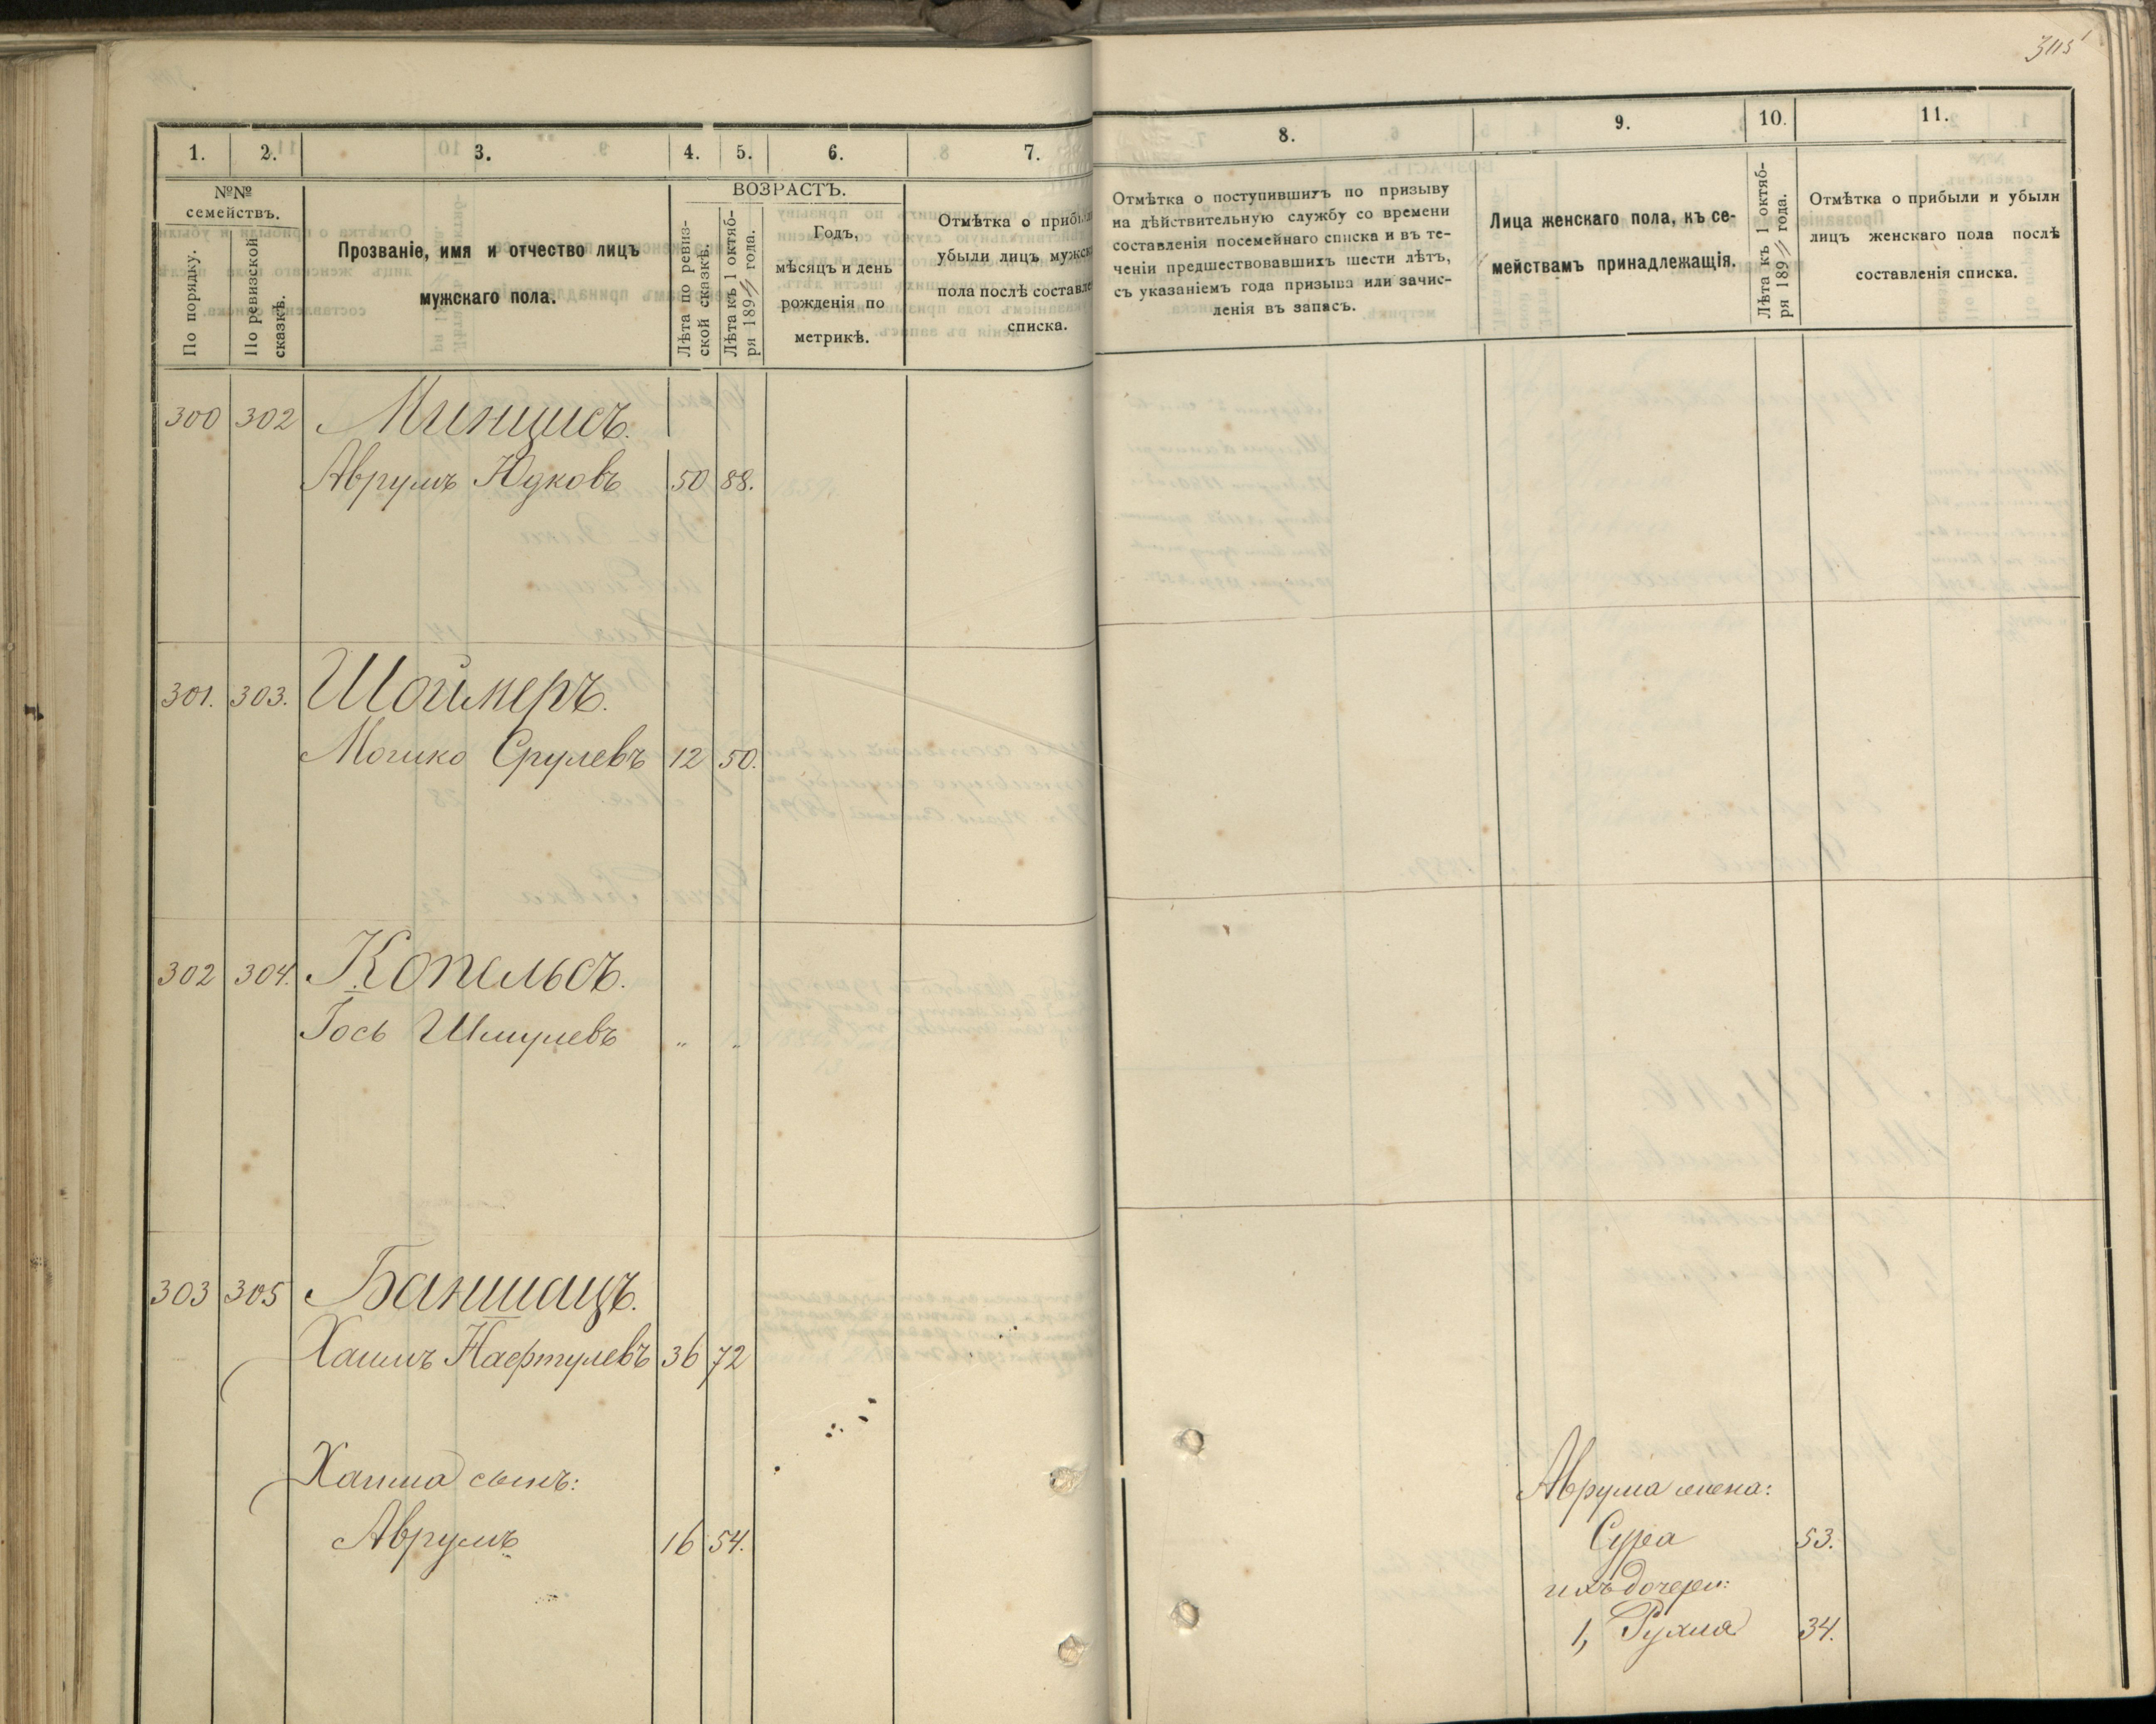 305
1. 2. 3. 4. 5. 6. 7. 8. 9. 10. 11.
№№ семействъ.
По порядку.
По ревизской сказкѣ.
Прозваніе, имя и отчество лицъ
мужскаго пола.
ВОЗРАСТЪ.
Лѣта по ревиз-
ской сказкѣ.
Лѣта къ 1 октяб-
ря 189 года.
Годъ,
мѣсяцъ и день
рожденія по
метрикѣ.
Отмѣтка о прибыли
убыли лицъ мужск
пола послѣ составле
списка.
Отмѣтка о поступившихъ по призыву
на дѣйствительную службу со времени
составленія посемейнаго списка и въ те-
ченіи предшествовавшихъ шести лѣтъ,
съ указаніемъ года призыва или зачис-
ленія въ запасъ.
Лица женскаго пола, къ се-
мействамъ принадлежащія.
Лѣта къ 1 октяб-
ря 189 года.
Отмѣтка о прибыли и убыли
лицъ женскаго пола послѣ
составленія списка.
300 302 Минцисъ.
Аврумъ Юдковъ 50 88.
301. 303. Шоймеръ.
Мошко Срулевъ 12 50.
302 304. Копельсъ.
Іось Шмулевъ " "
303 305 Баншацъ.
Хаимъ Нафтулевъ 36 72
Хаима сынъ:
Аврумъ 16 54.
Аврума жена:
Сура 53.
ихъ дочери:
1, Рухля 34.